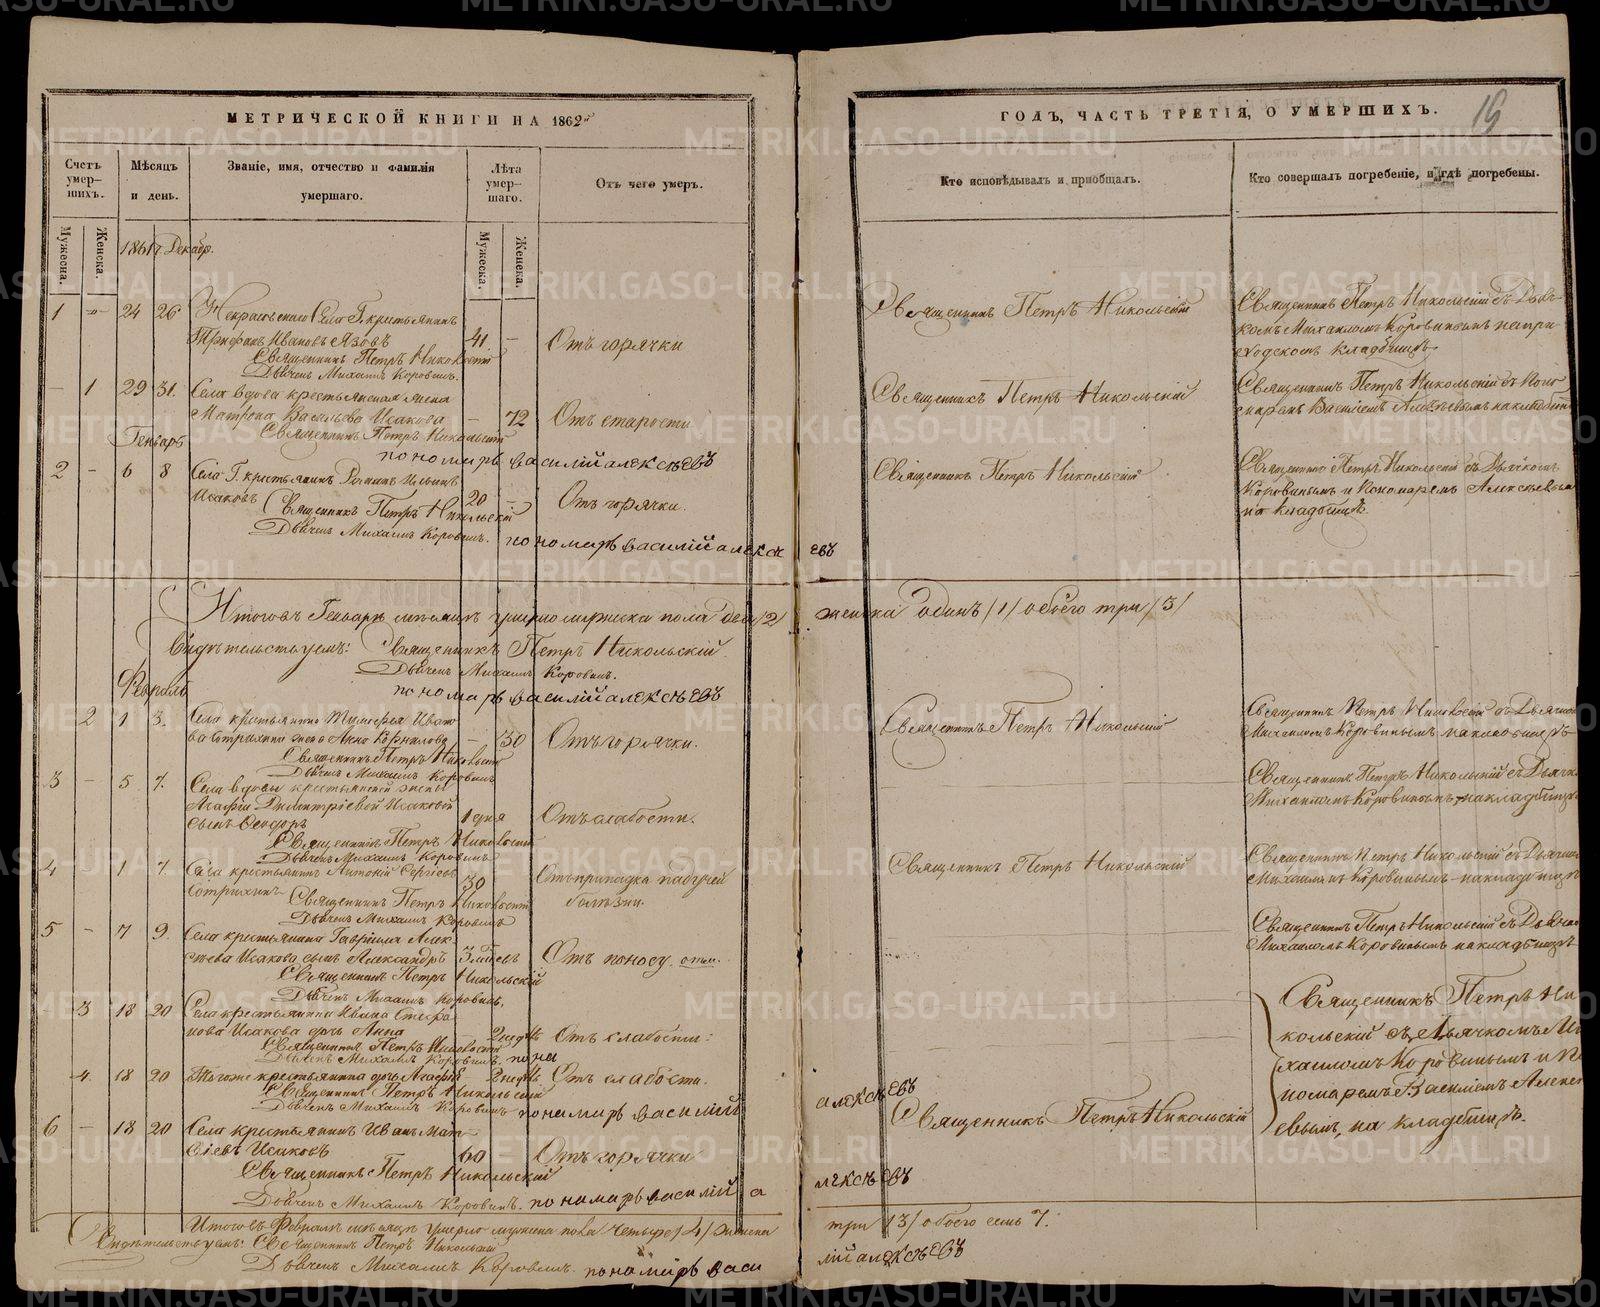 МЕТРИЧЕСКОЙ КНИГИ НА 1862й
Счетъ умер-шихъ.
Мѣсяцъ и день.
Званіе, имя, отчество и фамилія умершаго.
Лѣта умер-шаго.
Отъ чего умеръ.
Мужеска.
Женска.
Мужеска.
Женска.
1861 г. Декабр.
1 24 26 Некрасовскаго Села Г. крестьянинъ
Трифонъ Ивановъ Язовъ 41. — Отъ горячки
Священникъ Петръ Никольскій
Дьячекъ Михаилъ Коровинъ.
— 1 29 31. Села вдова крестьянская жена
Матрона Васильева Исакова — 72 Отъ старости
Священникъ Петръ Никольскій
пономарь василій алексѣевъ
Генварь
2 — 6 8 Села Г. крестьянинъ
Исаковъ 20 — Отъ горячки.
Священникъ Петръ Никольскій
Дьячекъ Михаилъ Коровинъ.
пономарь василій алексѣевъ
Итого въ Генварѣ мѣсяцѣ умерло мужеска пола два /2/ женска одинъ /1/ обоего три /3/
Свидѣтельствуемъ: Священникъ Петръ Никольскій
Дьячекъ Михаилъ Коровинъ.
пономарь василій алексѣевъ
Февраль
2 1 3. Села крестьянина Тимофея Ивано
ва жена Анна Корнилова — 30 Отъ горячки.
Священникъ Петръ Никольскій
Дьячекъ Михаилъ Коровинъ
3 — 5 7. Села вдовы крестьянской жены
Агафіи Димитріевой Исаковой
сынъ Ѳеодоръ 1 дня Отъ слабости.
Священникъ Петръ Никольскій
Дьячекъ Михаилъ Коровинъ
4 — 1 7. Села крестьянинъ Антоній Сергѣевъ
30 Отъ припадка падучей
болѣзни.
Священникъ Петръ Никольскій
Дьячекъ Михаилъ Коровинъ
5 — 7 9. Села крестьянина Гавріила Алек
сѣева Исакова сынъ Александръ Отъ поносу
Священникъ Петръ Никольскій
Дьячекъ Михаилъ Коровинъ.
3 18 20 Села крестьянина Стефа
нова Исакова дочь Анна 2 недѣль Отъ слабости:
Священникъ Петръ Никольскій
Дьячекъ Михаилъ Коровинъ.
4. 18 20 Тогоже крестьянина дочь Агафія 2 недѣль Отъ слабости.
Священникъ Петръ Никольскій
Дьячекъ Михаилъ Коровинъ пономарь василій алексѣевъ
6 — 18 20 Села крестьянинъ Иванъ Мат
вѣевъ Исаковъ 60 Отъ горячки
Священникъ Петръ Никольскій
Дьячекъ Михаилъ Коровинъ. пономарь василій алексѣевъ
Итого въ Февралѣ мѣсяцѣ умерло мужеска пола четыре /4/ женска три /3/ обоего семь 7.
Свидѣтельствуемъ: Священникъ Петръ Никольскій
Дьячекъ Михаилъ Коровинъ. пономарь василій алексѣевъ
ГОДЪ, ЧАСТЬ ТРЕТІЯ, О УМЕРШИХЪ.
19
Кто исповѣдывалъ и пріобщалъ.
Кто совершалъ погребеніе, и гдѣ погребены.
Священникъ Петръ Никольскій
Священникъ Петръ Никольскій съ Дьяч
комъ Михаиломъ Коровинымъ на при
ходскомъ кладбищѣ
Священникъ Петръ Никольскій
Священникъ Петръ Никольскій съ Поно
маремъ Василіемъ Алексѣевымъ на кладбищѣ
Священникъ Петръ Никольскій
Священникъ Петръ Никольскій съ Дьячкомъ
Коровинымъ и Пономаремъ Алексѣевым
на кладбищѣ.
Священникъ Петръ Никольскій
Священникъ Петръ Никольскій съ Дьячко
Михаиломъ Коровинымъ на кладбищѣ
Священникъ Петръ Никольскій съ Дьячк
Михаиломъ Коровинымъ на кладбищѣ
Священникъ Петръ Никольскій
Священникъ Петръ Никольскій съ Дьячко
Михаиломъ Коровинымъ на кладбищѣ
Священникъ Петръ Никольскій съ Дьячко
Михаиломъ Коровинымъ на кладбищѣ
Священникъ Петръ Ни
кольскій съ Дьячкомъ Ми
хаиломъ Коровинымъ и По
номаремъ Василіемъ Алексѣ
евымъ, на кладбищѣ.
Священникъ Петръ Никольскій
METRIKI.GASO-URAL.RU